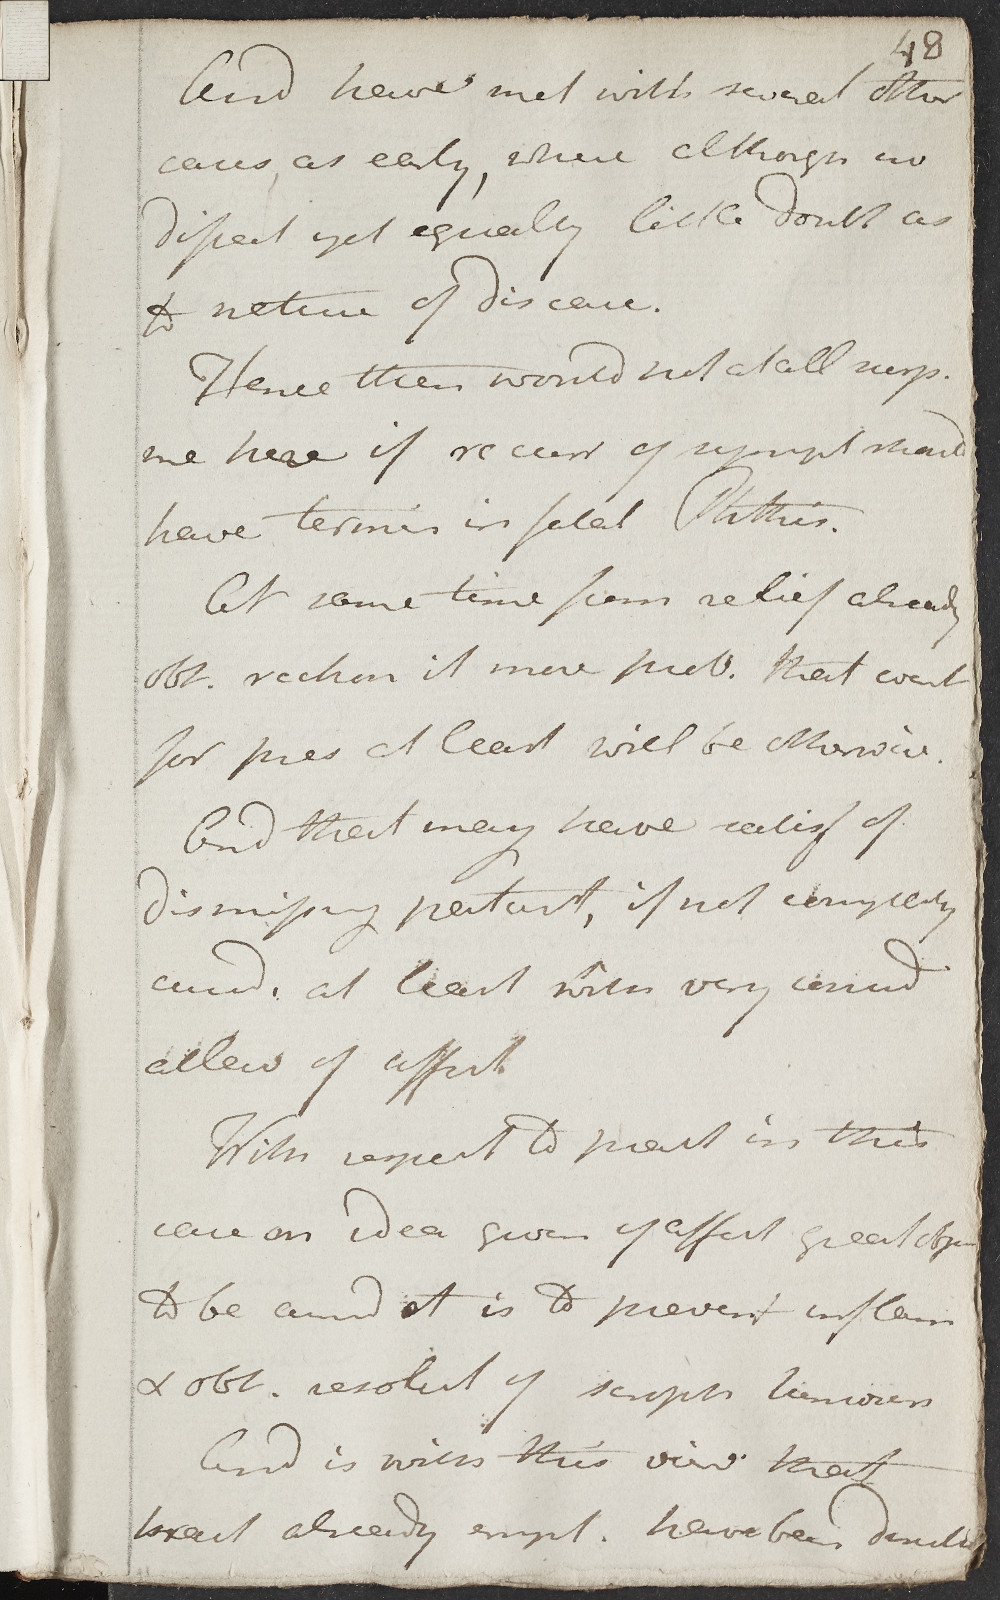 48
And have met with several other
cases, as early, where although no
dissect yet equally little doubt as
to nature of disease.
Hence then would not at all surp.
me here if recurr of sympt should
have termin in fatal Phthis.
At same time from relief already
obt. reckon it more prob. that event
for pres at least will be otherwise.
And that may have satisf of
dismissing patient, if not completely
cured, at least with very consid
allev of affect
With respect to pract in this
case on idea given of affect great obje
to be aimd at is to prevent inflam
& obt. resolut of scroph tumours
And is with this view that
treat already empl. have been